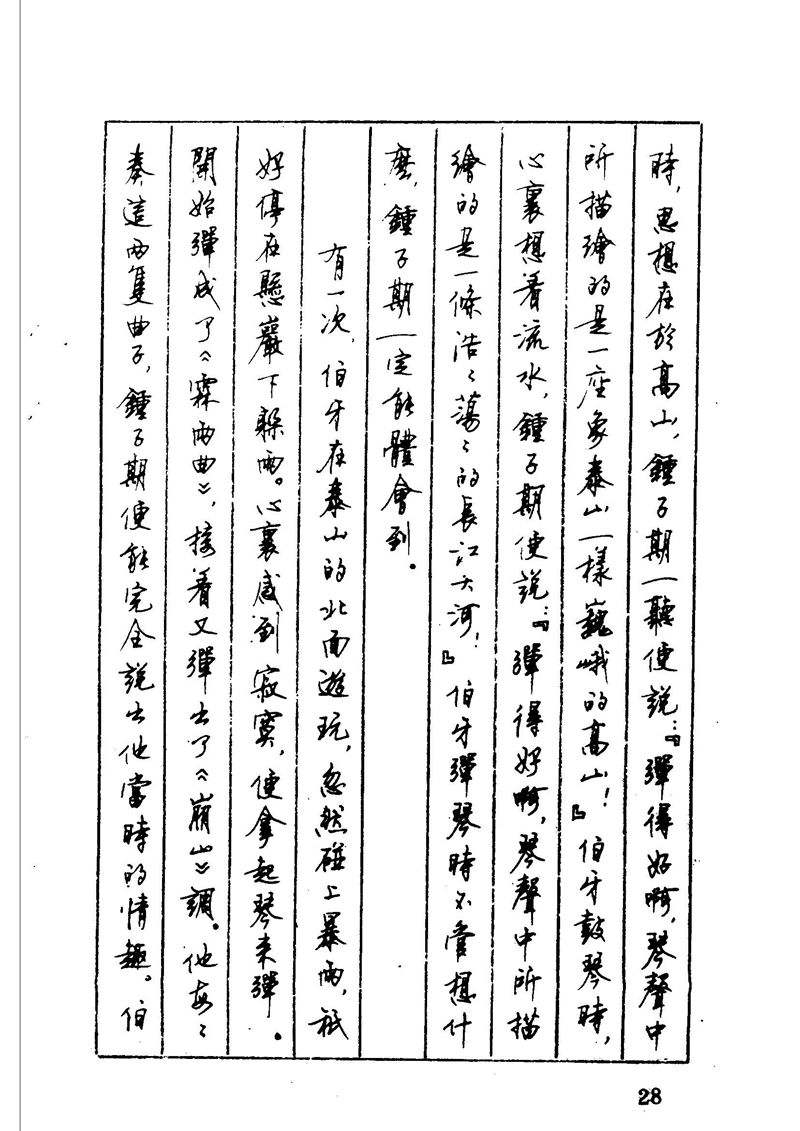 時，思想在於高山，鍾子期一聽便說：『彈得好啊，琴聲中
所描繪的是一座象泰山一樣巍峨的高山！』伯牙鼓琴時，
心裏想着流水，鍾子期便說：『彈得好啊，琴聲中所描
繪的是一條浩〻蕩〻的長江大河！』伯牙彈琴時不管想什
麼，鍾子期一定能體會到。
有一次，伯牙在泰山的北面遊玩，忽然碰上暴雨，祇
好停在懸巖下躲雨。心裏感到寂寞，便拿起琴來彈。
開始彈成了《霖雨曲》，接着又彈出了《崩山》調。他每〻
奏這兩隻曲子，鍾子期便能完全說出他當時的情趣。伯
28